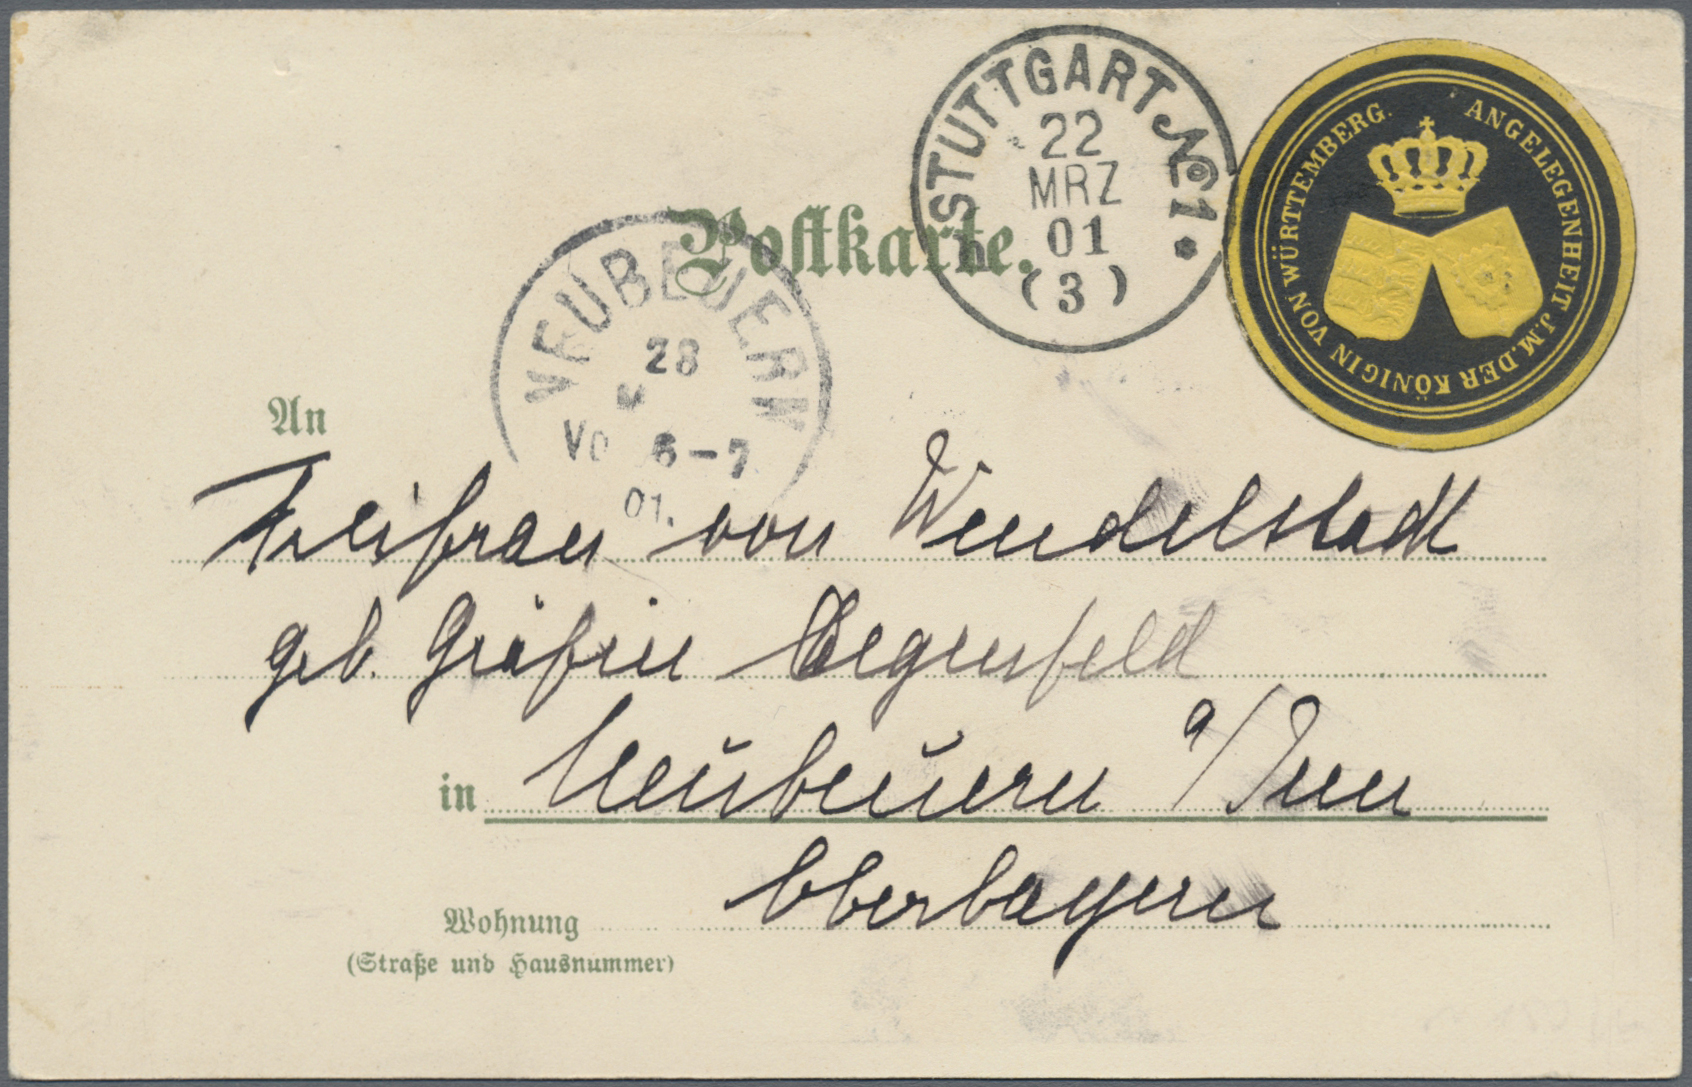 Postkarte.
STUTTGART № 1
22
MRZ
01
(3)
ANGELEGENHEIT J.M. DER KÖNIGIN VON WÜRTTEMBERG.
NEUBEUERN
28
6-7
01.
An
Freifrau von Wendelstadt
geb. Gräfin Degenfeld
in Neubeuern a/Inn
Oberbayern
Wohnung
(Straße und Hausnummer)